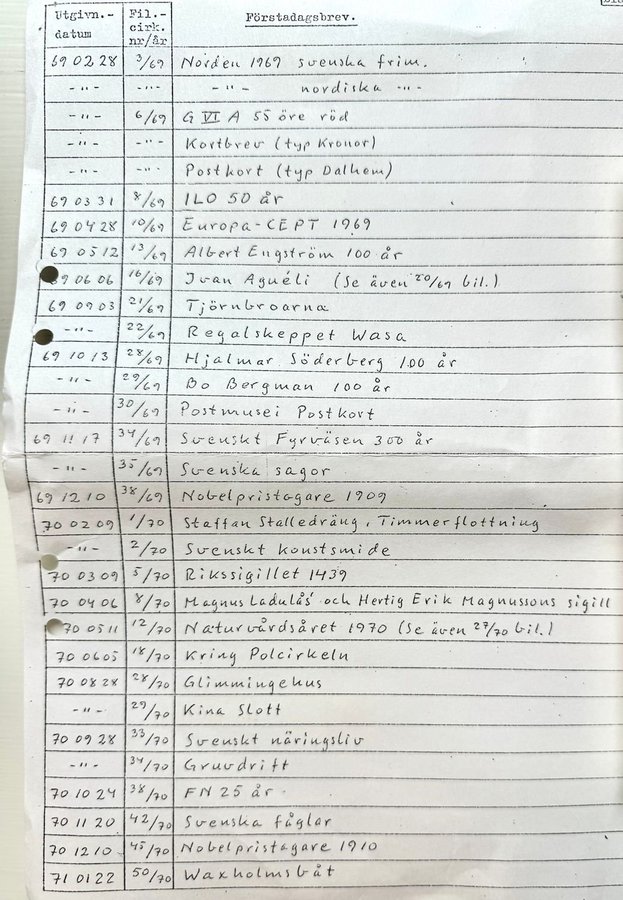 Utgivn.-datum Fil.-cirk. nr/år Förstadagsbrev.
69 02 28 3/69 Norden 1969 svenska frim.
-"- -"- -"- nordiska -"-
-"- 6/69 G VI A 55 öre röd
-"- -"- Kortbrev (typ Kronor)
-"- -"- Postkort (typ Dalhem)
69 03 31 8/69 ILO 50 år
69 04 28 10/69 Europa-CEPT 1969
69 05 12 13/69 Albert Engström 100 år
69 06 06 16/69 Ivan Aguéli (Se även 20/69 bil.)
69 09 03 21/69 Tjörnbroarna
-"- 22/69 Regalskeppet Wasa
69 10 13 28/69 Hjalmar Söderberg 100 år
-"- 29/69 Bo Bergman 100 år
-"- 30/69 Postmusei Postkort
69 11 17 34/69 Svenskt Fyrväsen 300 år
-"- 35/69 Svenska sagor
69 12 10 38/69 Nobelpristagare 1909
70 02 09 1/70 Staffan Stalledräng, Timmerflottning
-"- 2/70 Svenskt konstsmide
70 03 09 5/70 Rikssigillet 1439
70 04 06 8/70 Magnus Ladulås och Hertig Erik Magnussons sigill
70 05 11 12/70 Naturvårdsåret 1970 (Se även 27/70 bil.)
70 06 05 18/70 Kring Polcirkeln
70 08 28 28/70 Glimmingehus
-"- 29/70 Kina Slott
70 09 28 33/70 Svenskt näringsliv
-"- 34/70 Gruvdrift
70 10 24 38/70 FN 25 år
70 11 20 42/70 Svenska fåglar
70 12 10 45/70 Nobelpristagare 1910
71 01 22 50/70 Waxholmsbåt